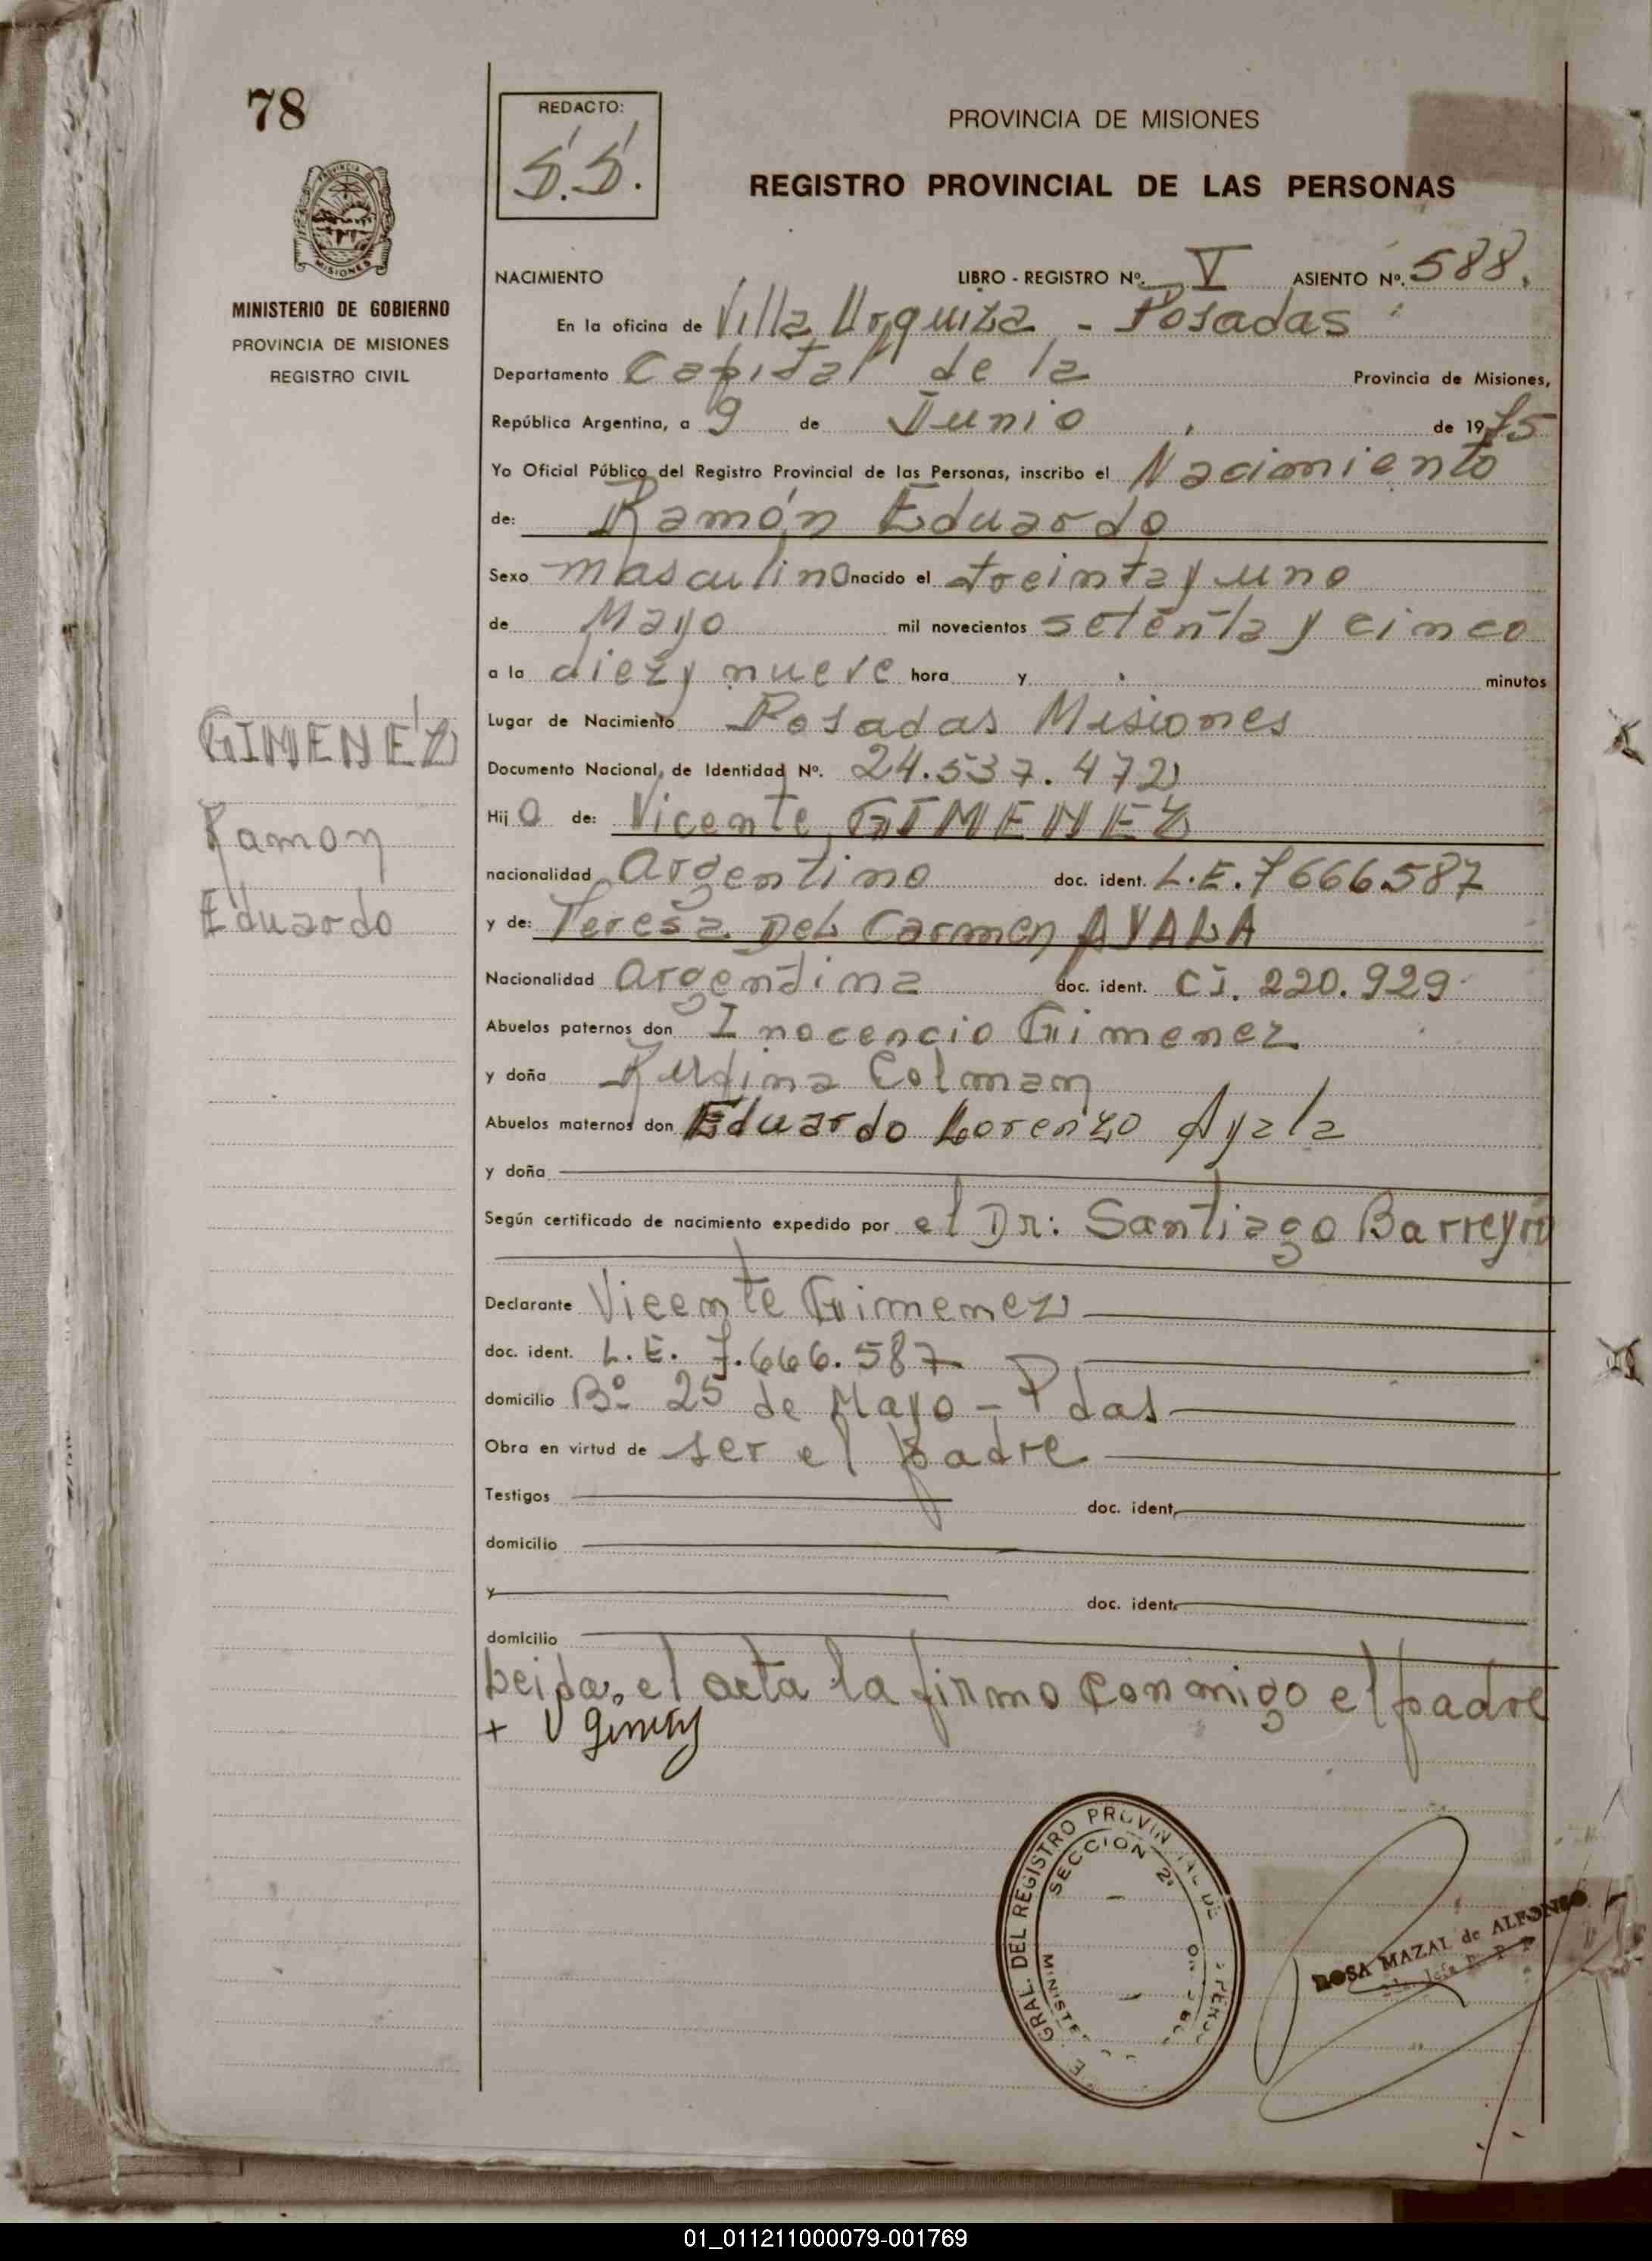 78
REDACTO:
S.S.
PROVINCIA DE MISIONES
REGISTRO PROVINCIAL DE LAS PERSONAS
PROVINCIA DE
MISIONES
MINISTERIO DE GOBIERNO
PROVINCIA DE MISIONES
REGISTRO CIVIL
NACIMIENTO LIBRO - REGISTRO Nº. V ASIENTO Nº. 588.
En la oficina de Villa Urquiza - Posadas
Departamento Capital de la Provincia de Misiones,
República Argentina, a 9 de Junio de 1975
Yo Oficial Público del Registro Provincial de las Personas, inscribo el Nacimiento
de: Ramón Eduardo
Sexo masculino nacido el treinta y uno
de Mayo mil novecientos setenta y cinco
a la diez y nueve hora y minutos
Lugar de Nacimiento Posadas Misiones
Documento Nacional de Identidad Nº. 24.537.472
Hijo de: Vicente GIMENEZ
nacionalidad Argentino doc. ident. L.E. 7666.587
y de: Teresa Del Carmen AYALA
Nacionalidad Argentina doc. ident. CI. 220.929
Abuelos paternos don Inocencio Gimenez
y doña Colman
Abuelos maternos don Eduardo Lorenzo Ayala
y doña
Según certificado de nacimiento expedido por el Dr: Santiago Barreyro
Declarante Vicente Gimenez
doc. ident. L.E. 7.666.587
domicilio Bº 25 de Mayo - Pdas
Obra en virtud de ser el padre
Testigos doc. ident.
domicilio
y doc. ident.
domicilio
Leida, el acta la firmo conmigo el padre
+ V
GIMENEZ
Ramon
Eduardo
GRAL. DEL REGISTRO PROVIN
SECCION 2ª
ROSA MAZAL de ALFONSO
01_011211000079-001769